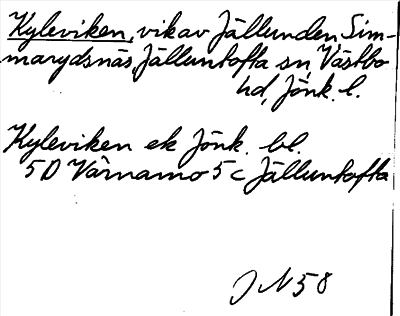 Kyleviken, vik av Jällunden, Sim-
marydsnäs, Jälluntofta sn, Västbo
hd, Jönk. l.
Kyleviken ek Jönk. bl.
5D Värnamo 5c Jälluntofta
J N 58